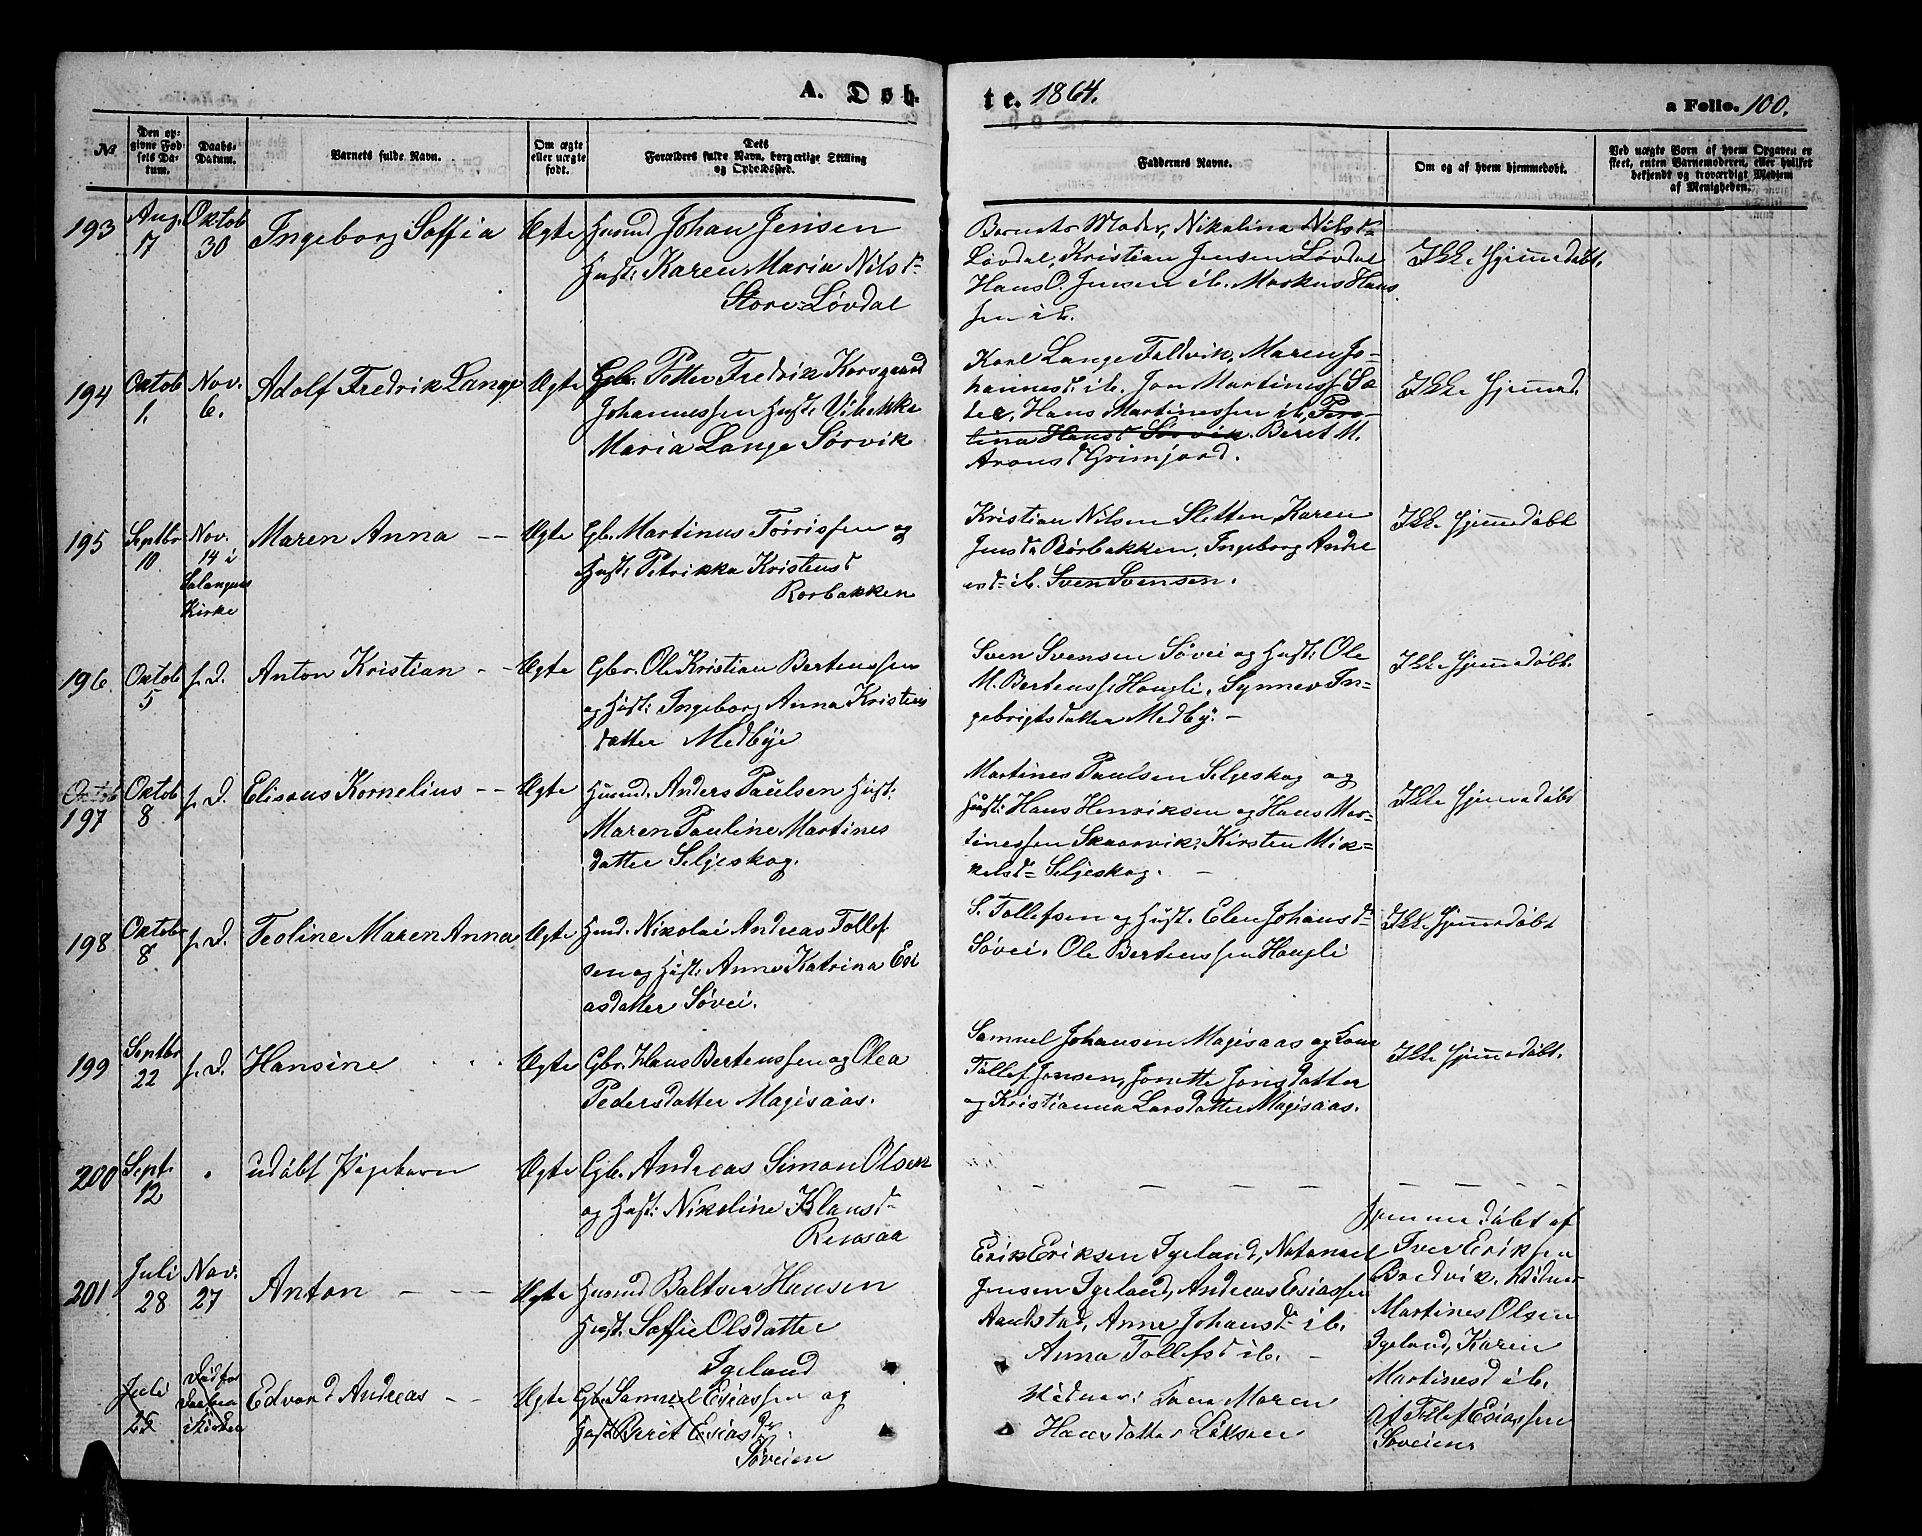 A. Døb-
te. 1864.
a Folio. 100.
No
Den op-
givne Fød-
sels Da-
tum.
Daabs-
Datum.
Barnets fulde Navn.
Om ægte
eller uægte
født.
Dets
Forældres fulde Navn, borgerlige Stilling
og Opholdssted.
Faddernes Navne.
Om og af hvem hjemmedøbt.
Ved uægte Børn af hvem Opgaven er
skeet, enten Barnemoderen, eller hvilket
bekjendt og troværdigt Medlem
af Menigheden.
193
Aug.
17
Oktob
30
Ingeborg Soffia
Ægte
Husmd Johan Jensen
Hust: Karen Maria Nilsd-
Store-Løvdal
Barnets Moder, Nikolina Nilsd-
Løvdal, Kristian Jensen Løvdal
Hans O. Jensen ib. Markus Han
sen ib.
Ikke Hjemmedøbt.
194
Oktob
1.
Nov.
6.
Adolf Fredrik Lange
Ægte
Gbr. Petter Fredrik Korsgaard
Johannessen Hust: Vibekke
Maria Lange Sørvik
Karl Lange Faldvik, Maren Jo-
hannesd ib. Jon Martiness Sæ-
ter, Hans Martinessen ib, Pero-
lina Hansd Sørvik. Beret M.
Aronsd Grimjord.
Ikke Hjemmed.
195
Septbr
10
Nov.
14 i
Salangens
Kirke
Maren Anna
Ægte
Gb. Martinus Tørrissen og
Hust: Petrikka Kristensd
Rørbakken
Kristian Nilsen Sletten, Karen
Jensda Rørbakken, Ingeborg Andre
asd- ib. Sven Svensen.
Ikke Hjemmedøbt
196
Oktob
5
s. D.
Anton Kristian
Ægte
Gbr. Ole Kristian Bertenssen
og Hust: Ingeborg Anna Kristens
datter Medbye
Sven Svensen Søvei og Hust: Ole
M. Bertenss. Hougli. Synnev In-
gebrigtsdatter Medby. -
Ikke Hjemmedøbt.
Oktob
197
Oktob
8
s. D.
Elisæus Kornelius
Ægte
Husmd. Anders Paulsen Hust:
Maren Pauline Martines
datter Seljeskog.
Martines Paulsen Seljeskog og
Hust: Hans Henriksen og Hans Mar-
tinessen Skaarvik, Kirsten Mik-
kelsd- Seljeskog.
Ikke Hjemmedøbt
198
Oktob
8
s. D.
Teoline Maren Anna
Ægte
Husmd. Nikolai Andreas Tollef
sen og Hust: Anne Katrina Esi
asdatter Søvei.
S. Tollefsen og Hust. Elen Johansd-
Søvei. Ole Bertenssen Hougli
Ikke Hjemmedøbt
199
Septbr
22
s. D.
Hansine
Ægte
Gbr. Hans Bertenssen og Olea
Pedersdatter Magisaas.
Samuel Johansen Magisaas og Kone
Tollef Jensen, Jonette Jonsdatter
og Kristianna Larsdatter Magisaas.
Ikke Hjemmedøbt.
200
Sept.
12
udøbt Pigebarn
Ægte
Gb. Andreas Simon Olsen
og Hust: Nikoline Klausd-
Rensaa
201
Juli
28
Nov.
27
Anton
Ægte
Husmd Baltser Hansen
Hust. Soffie Olsdatter
Igeland
Erik Eriksen Igeland, Natanael
Jensen Igeland, Andreas Esiassen
Aandstad, Anne Johansd- ib.
Anna Tollefsd ib.
Hjemmedøbt af
Iver Eriksen
Bredvik. Vidner
Martines Olsen
Igeland, Karen
Martinesd ib.
Juli
25
Død før
Daaben
i Kirken
Edvard Andreas
Ægte
Gbr. Samuel Esiassen og
Hust Berit Esiasdr.
Søveien
Vidner: Kone Maren
Hansdatter
Af Tollef Esiassen
Søveien